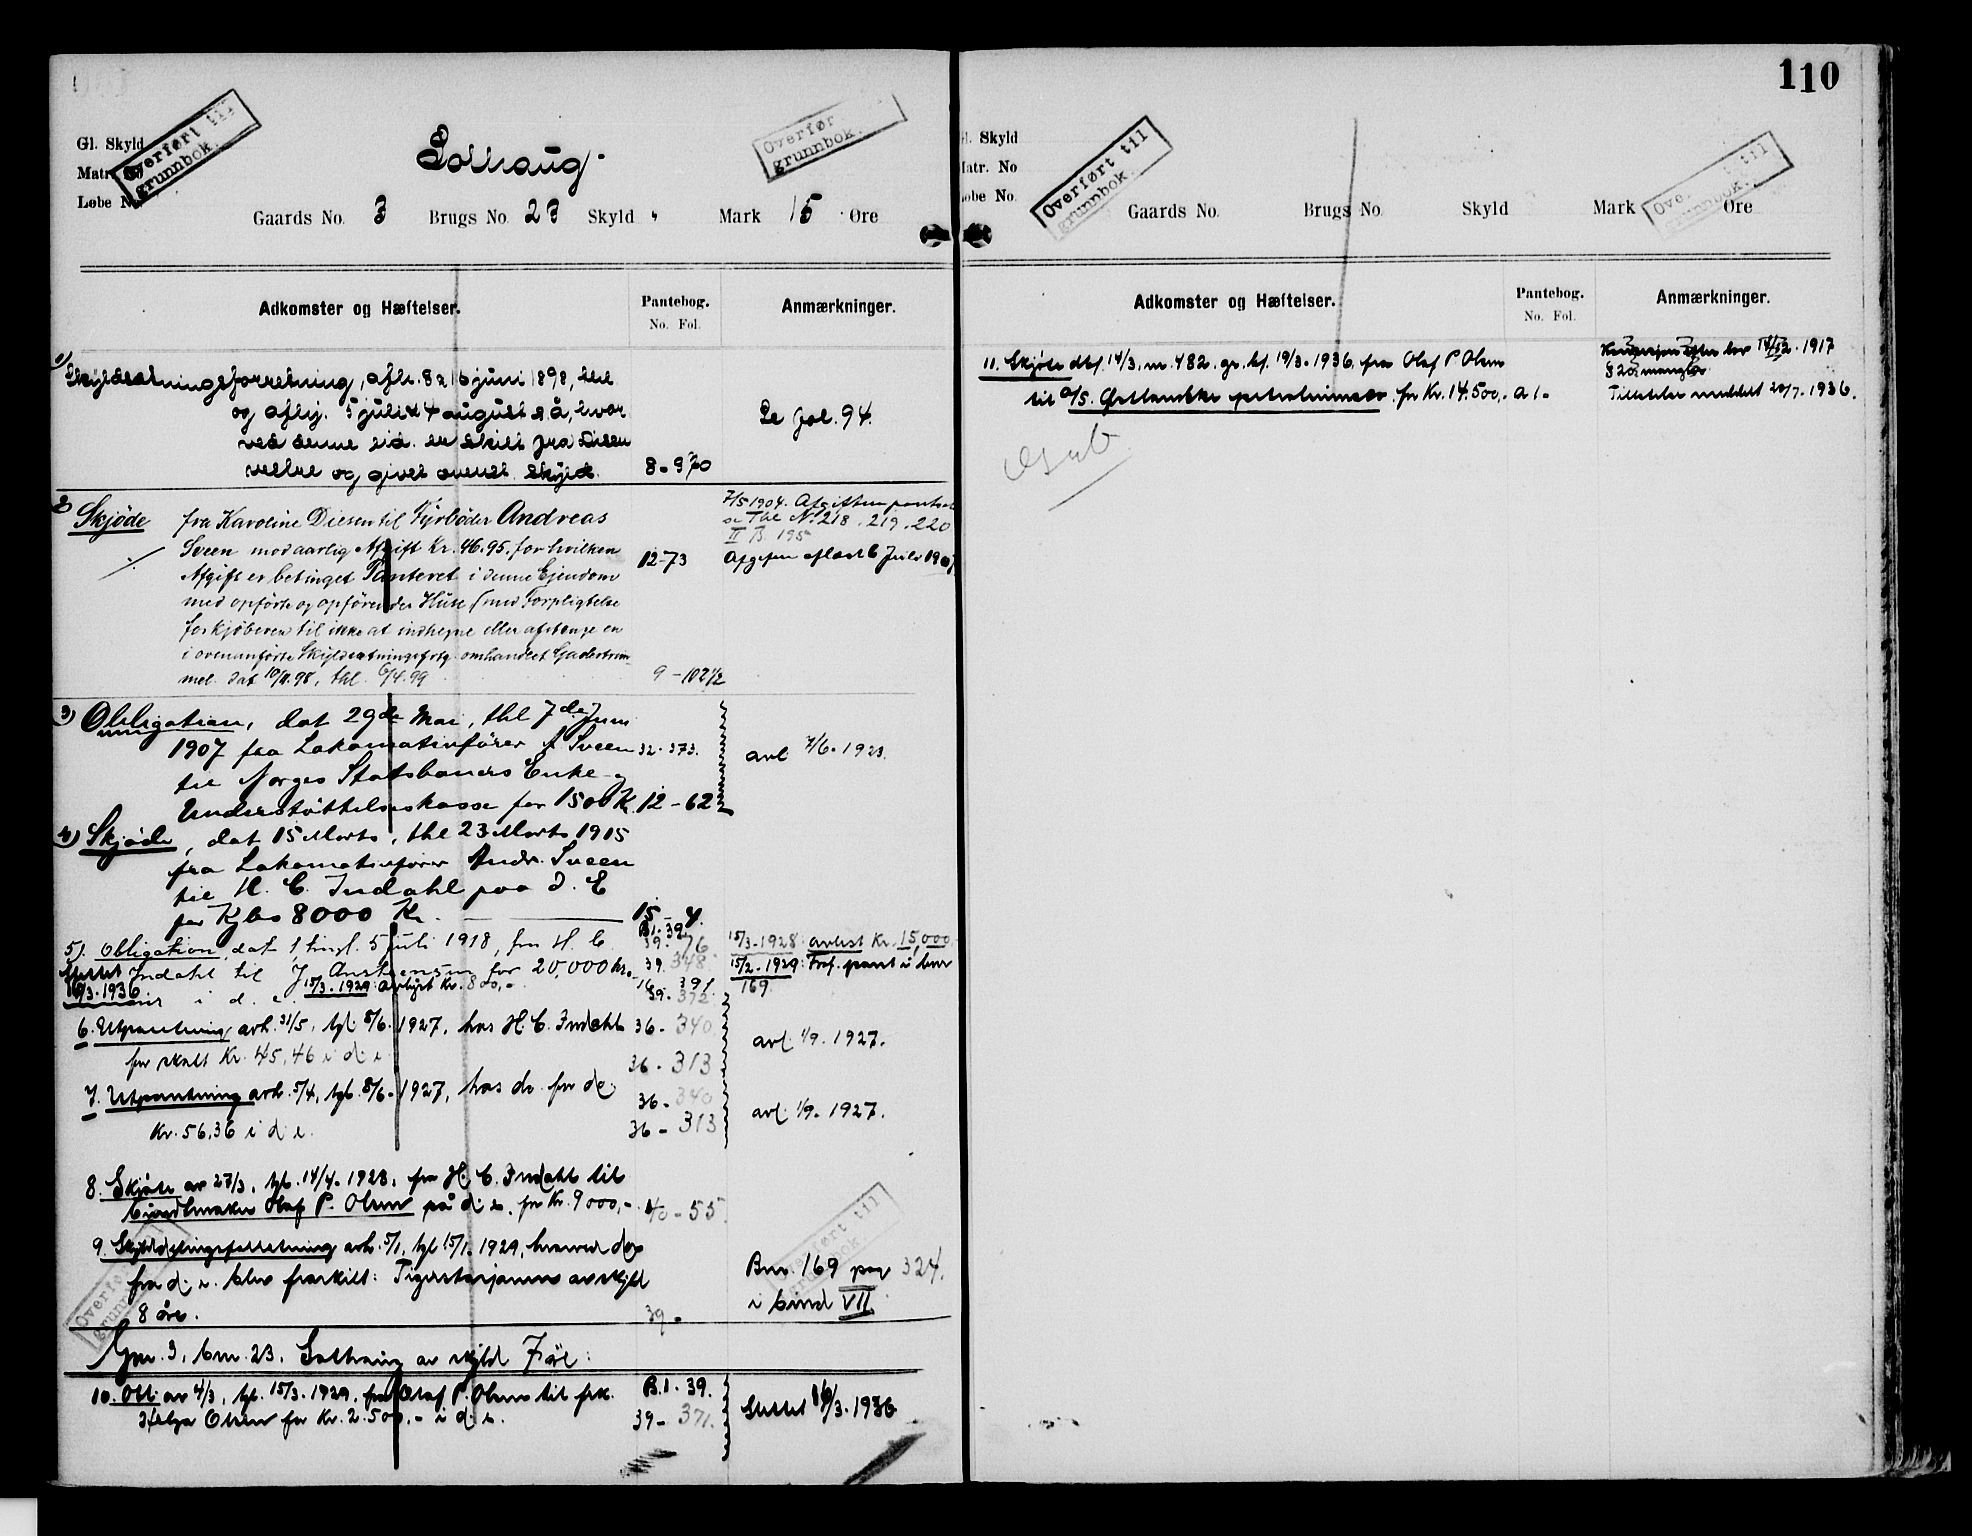 110
Gl. Skyld
Matr. No
Løbe No.
Overført til
grunnbok.
Solhaug
Overfør
grunnbok.
Gaards No. 3 Brugs No. 23 Skyld " Mark 15 Øre
Adkomster og Hæftelser. Pantebog. Anmærkninger.
No. Fol.
1) Skyldsætningsforretning, afh. 8 a 16 juni 1898, thl
og aflj. 5 juli & 4 august s å, hvor
ved denne eid. er skilt fra Diesen
vestre og givet ovenst. skyld. 8-970
Se fol. 94.
2) Skjøde fra Karoline Diesen til Fyrbøder Andreas
Sveen mod aarlig Afgift Kr. 46.95, for hvilken
Afgift er betinget Panteret i denne Ejendom
med opførte og opførendes Huse (med Forpligtelse
for kjøberen til ikke at indhegne eller afstænge en
i ovenanførte Skyldsætningsfortg. omhandlet Gadestrim-
mel. dat 10/11.98, thl. 6/4.99
12-73
9-102 1/2
7/5 1904. Afgiften pantsat
se Thl No. 218. 219. 220
II B. 195
Afgiften aflöst 6 Juli 190
3) Obligation, dat 29de Mai, thl 7de Juni
1907 fra Lokomotivfører A Sveen 32-373.
til Norges Statsbaners Enke- og
Understøttelseskasse for 1500 Kr. 12-62
avl. 7/6-1923.
4) Skjøde, dat 15 Marts, thl 23 Marts 1915
fra Lokomotivfører Andr. Sveen
til H. C. Indahl paa d. E
for Kjbs 8000 Kr. 15-4.
5). Obligation, dat 1, tingl. 5 juli 1918, fra H. C.
Indahl til J. for 20,000 kr.
15/3-1929: avlyst kr. 800,-
i d. e.
Slettet
16/3-1936
B.1-39.
39-76
39.348
39-372
15/3-1928: avlest Kr. 15,000
15/2-1929: Frf. pant i bnr
169
6. Utpantning avh. 31/5, tgl. 8/6-1927, hos H. C. Indahl 36-340
for skatt Kr. 45,46 i d. e. 36-313
avl. 1/9-1927.
7. Utpantning avh. 5/4, tgl. 8/6-1927, hos do. for do. 36-340
Kr. 56,36 i d. e. 36-313
avl. 1/9-1927.
8. Skjøte av 27/3, tgl. 14/4-1928, fra H. C. Indahl til
Olaf P. Olsen på d. e. for Kr. 9000,- 40-55
9. Skylddelingsforretning avh. 5/1, tgl. 15/1-1929, hvorved der
fra d. e. blev fraskilt: av skyld
8 øre. 39-
Bnr. 169 pag 324.
i bind VII
Overført til
grunnbok
Overfø
grunn
Gnr. 3, bnr. 23. Solhaug av skyld 7 øre:
10. Obl. av 4/3, tgl. 15/3-1929, fra Olaf P. Olsen til frk. B.1-39.
Helga Olsen for Kr. 2.500,- i d. e. 39-371.
Slettet 16/3-1936
Gl. Skyld
Matr. No
Løbe No.
Overført til
grunnbok.
Gaards No. Brugs No. Skyld Mark Øre
Ove. til
grunnbok.
Adkomster og Hæftelser. Pantebog. Anmærkninger.
No. Fol.
11. Skjøte dat. 14/3, nr. 482. gr. bf. 19/3-1936, fra Olaf P Olsen
til A/S. Østlandske petroleumsco. for Kr. 14.500,-
Konsesjon efter lov 1917
§ 20, mangler
Tillatelse meddelt 20/7-1936.